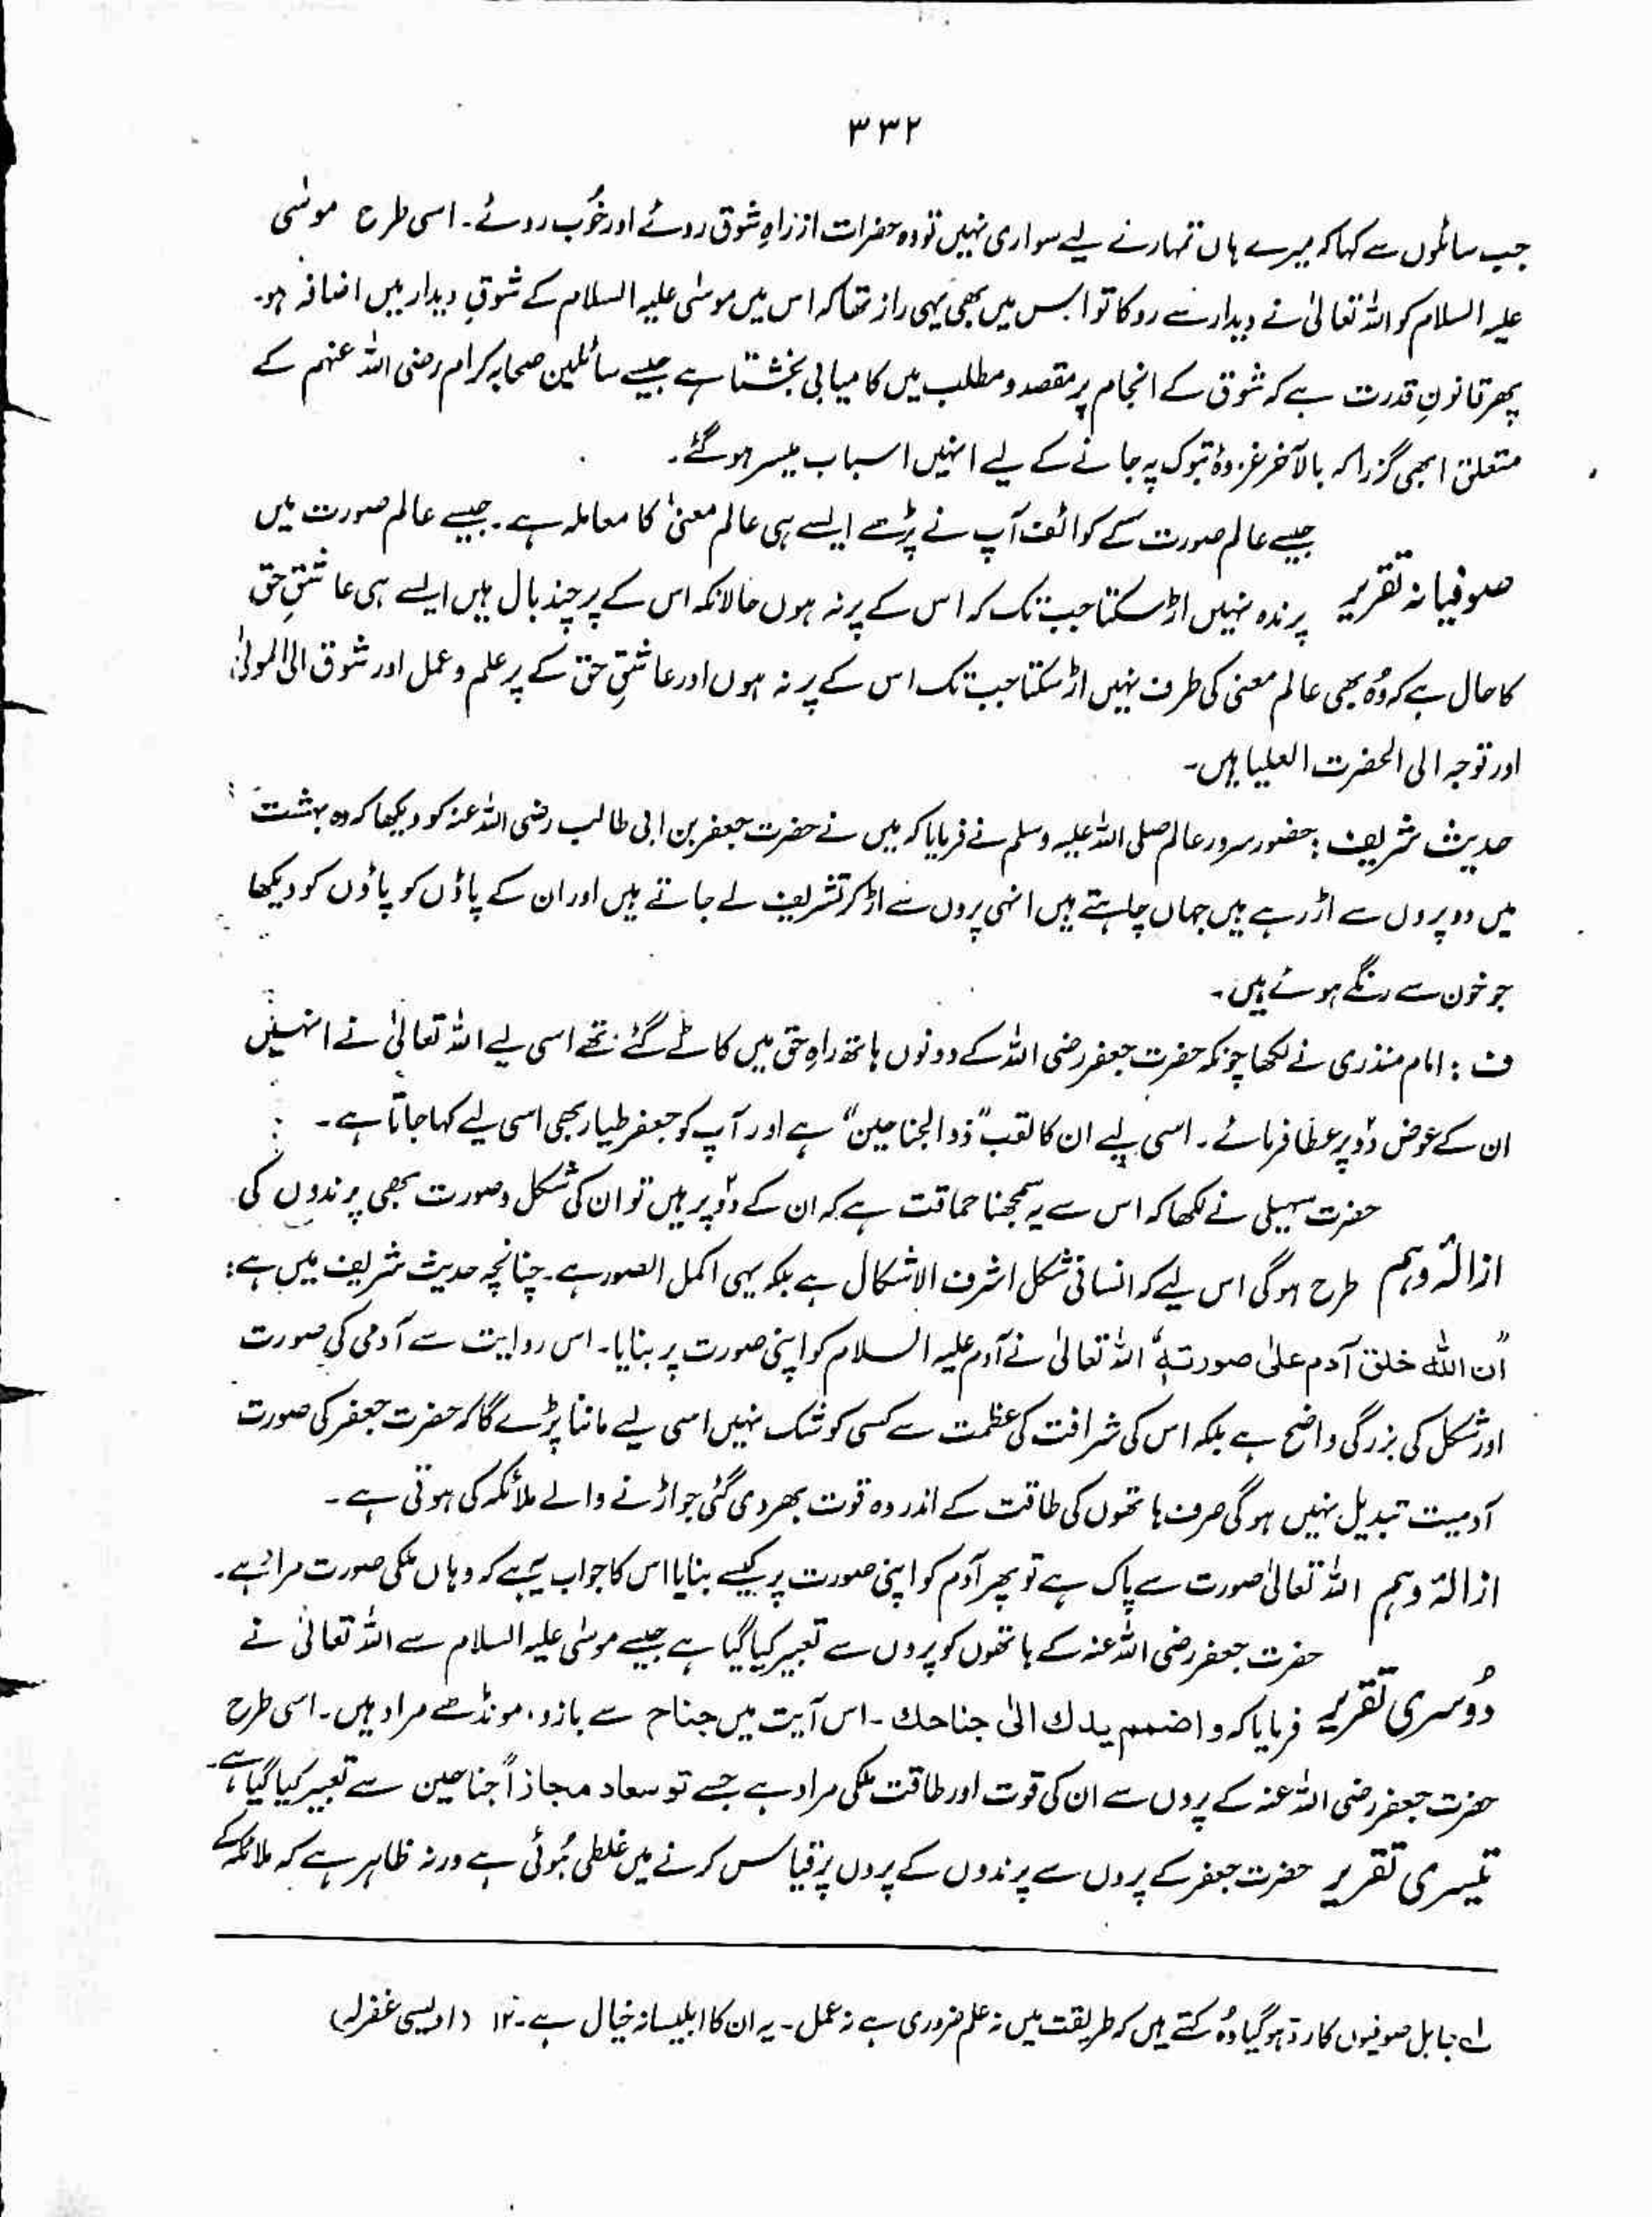 ۳۳۲
جب سائلوں سے کہا کہ میرے ہاں تمہارنے لیے سواری نہیں تو وہ حضرات از راہِ شوق روئے اور خُوب روئے۔ اسی طرح موسٰی
علیہ السلام کو اللہ تعالیٰ نے دیدار سے روکا تو اس میں بھی یہی راز تھا کہ اس میں موسٰی علیہ السلام کے شوقِ دیدار میں اضافہ ہو۔
پھر قانونِ قدرت ہے کہ شوق کے انجام پر مقصد و مطلب میں کامیابی بخشتا ہے جیسے سائلین صحابہ کرام رضی اللہ عنہم کے
متعلق ابھی گزرا کہ بالآخر غزوۂ تبوک پہ جانے کے لیے انہیں اسباب میسر ہو گئے۔
جیسے عالمِ صورت کے کوائف آپ نے پڑھے ایسے ہی عالمِ معنیٰ کا معاملہ ہے۔ جیسے عالم صورت میں
صوفیانہ تقریر پرندہ نہیں اڑ سکتا جب تک کہ اس کے پر نہ ہوں حالانکہ اس کے پر چند بال ہیں ایسے ہی عاشقِ حق
کا حال ہے کہ وُہ بھی عالم معنی کی طرف نہیں اڑ سکتا جب تک اس کے پر نہ ہوں اور عاشقِ حق کے پر علم و عمل اور شوق الی المولیٰ
اور توجہ الی الحضرت العلیا ہیں۔
حدیث شریف : حضور سرور عالم صلی اللہ علیہ وسلم نے فرمایا کہ میں نے حضرت جعفر بن ابی طالب رضی اللہ عنہ کو دیکھا کہ وہ بہشت
میں دو پروں سے اڑ رہے ہیں جہاں چاہتے ہیں انہی پروں سے اڑ کر تشریف لے جاتے ہیں اور ان کے پاؤں کو پاؤں کو دیکھا
جو خون سے رنگے ہوئے ہیں۔
ف : امام منذری نے لکھا چونکہ حضرت جعفر رضی اللہ کے دونوں ہاتھ راہِ حق میں کاٹے گئے تھے اسی لیے اللہ تعالیٰ نے انہیں
ان کے عوض دو پر عطا فرمائے۔ اسی لیے ان کا لقب "ذوالجناحین" ہے اور آپ کو جعفر طیار بھی اسی لیے کہا جاتا ہے۔
حضرت سہیلی نے لکھا کہ اس سے یہ سمجھنا حماقت ہے کہ ان کے دو پر ہیں تو ان کی شکل و صورت بھی پرندوں کی
ازالۂ وہم طرح ہو گی اس لیے کہ انسانی شکل اشرف الاشکال ہے بلکہ یہی اکمل الصور ہے۔ چنانچہ حدیث شریف میں ہے:
"ان اللہ خلق آدم علیٰ صورتہٖ" اللہ تعالیٰ نے آدم علیہ السلام کو اپنی صورت پر بنایا۔ اس روایت سے آدمی کی صورت
اور شکل کی بزرگی واضح ہے بلکہ اس کی شرافت کی عظمت سے کسی کو شک نہیں اسی لیے ماننا پڑے گا کہ حضرت جعفر کی صورت
آدمیت تبدیل نہیں ہو گی صرف ہاتھوں کی طاقت کے اندر وہ قوت بھر دی گئی جو اڑنے والے ملائکہ کی ہوتی ہے۔
ازالۂ وہم اللہ تعالیٰ صورت سے پاک ہے تو پھر آدم کو اپنی صورت پر کیسے بنایا اس کا جواب یہ ہے کہ وہاں ملکی صورت مراد ہے۔
حضرت جعفر رضی اللہ عنہ کے ہاتھوں کو پروں سے تعبیر کیا گیا ہے جیسے موسٰی علیہ السلام سے اللہ تعالیٰ نے
دُوسری تقریر فرمایا کہ واضمم یدك الیٰ جناحك۔ اس آیت میں جناح سے بازو، مونڈھے مراد ہیں۔ اسی طرح
حضرت جعفر رضی اللہ عنہ کے پروں سے ان کی قوت اور طاقت ملکی مراد ہے جسے توسعاد مجازاً جناحین سے تعبیر کیا گیا ہے۔
تیسری تقریر حضرت جعفر کے پروں سے پرندوں کے پروں پر قیاس کرنے میں غلطی ہُوئی ہے ورنہ ظاہر ہے کہ ملائکہ کے
لے جاہل صوفیوں کا رد ہو گیا وُہ کہتے ہیں کہ طریقت میں نہ علم ضروری ہے نہ عمل۔ یہ ان کا ابلیسانہ خیال ہے۔ ۱۲ (اویسی غفرلہ)